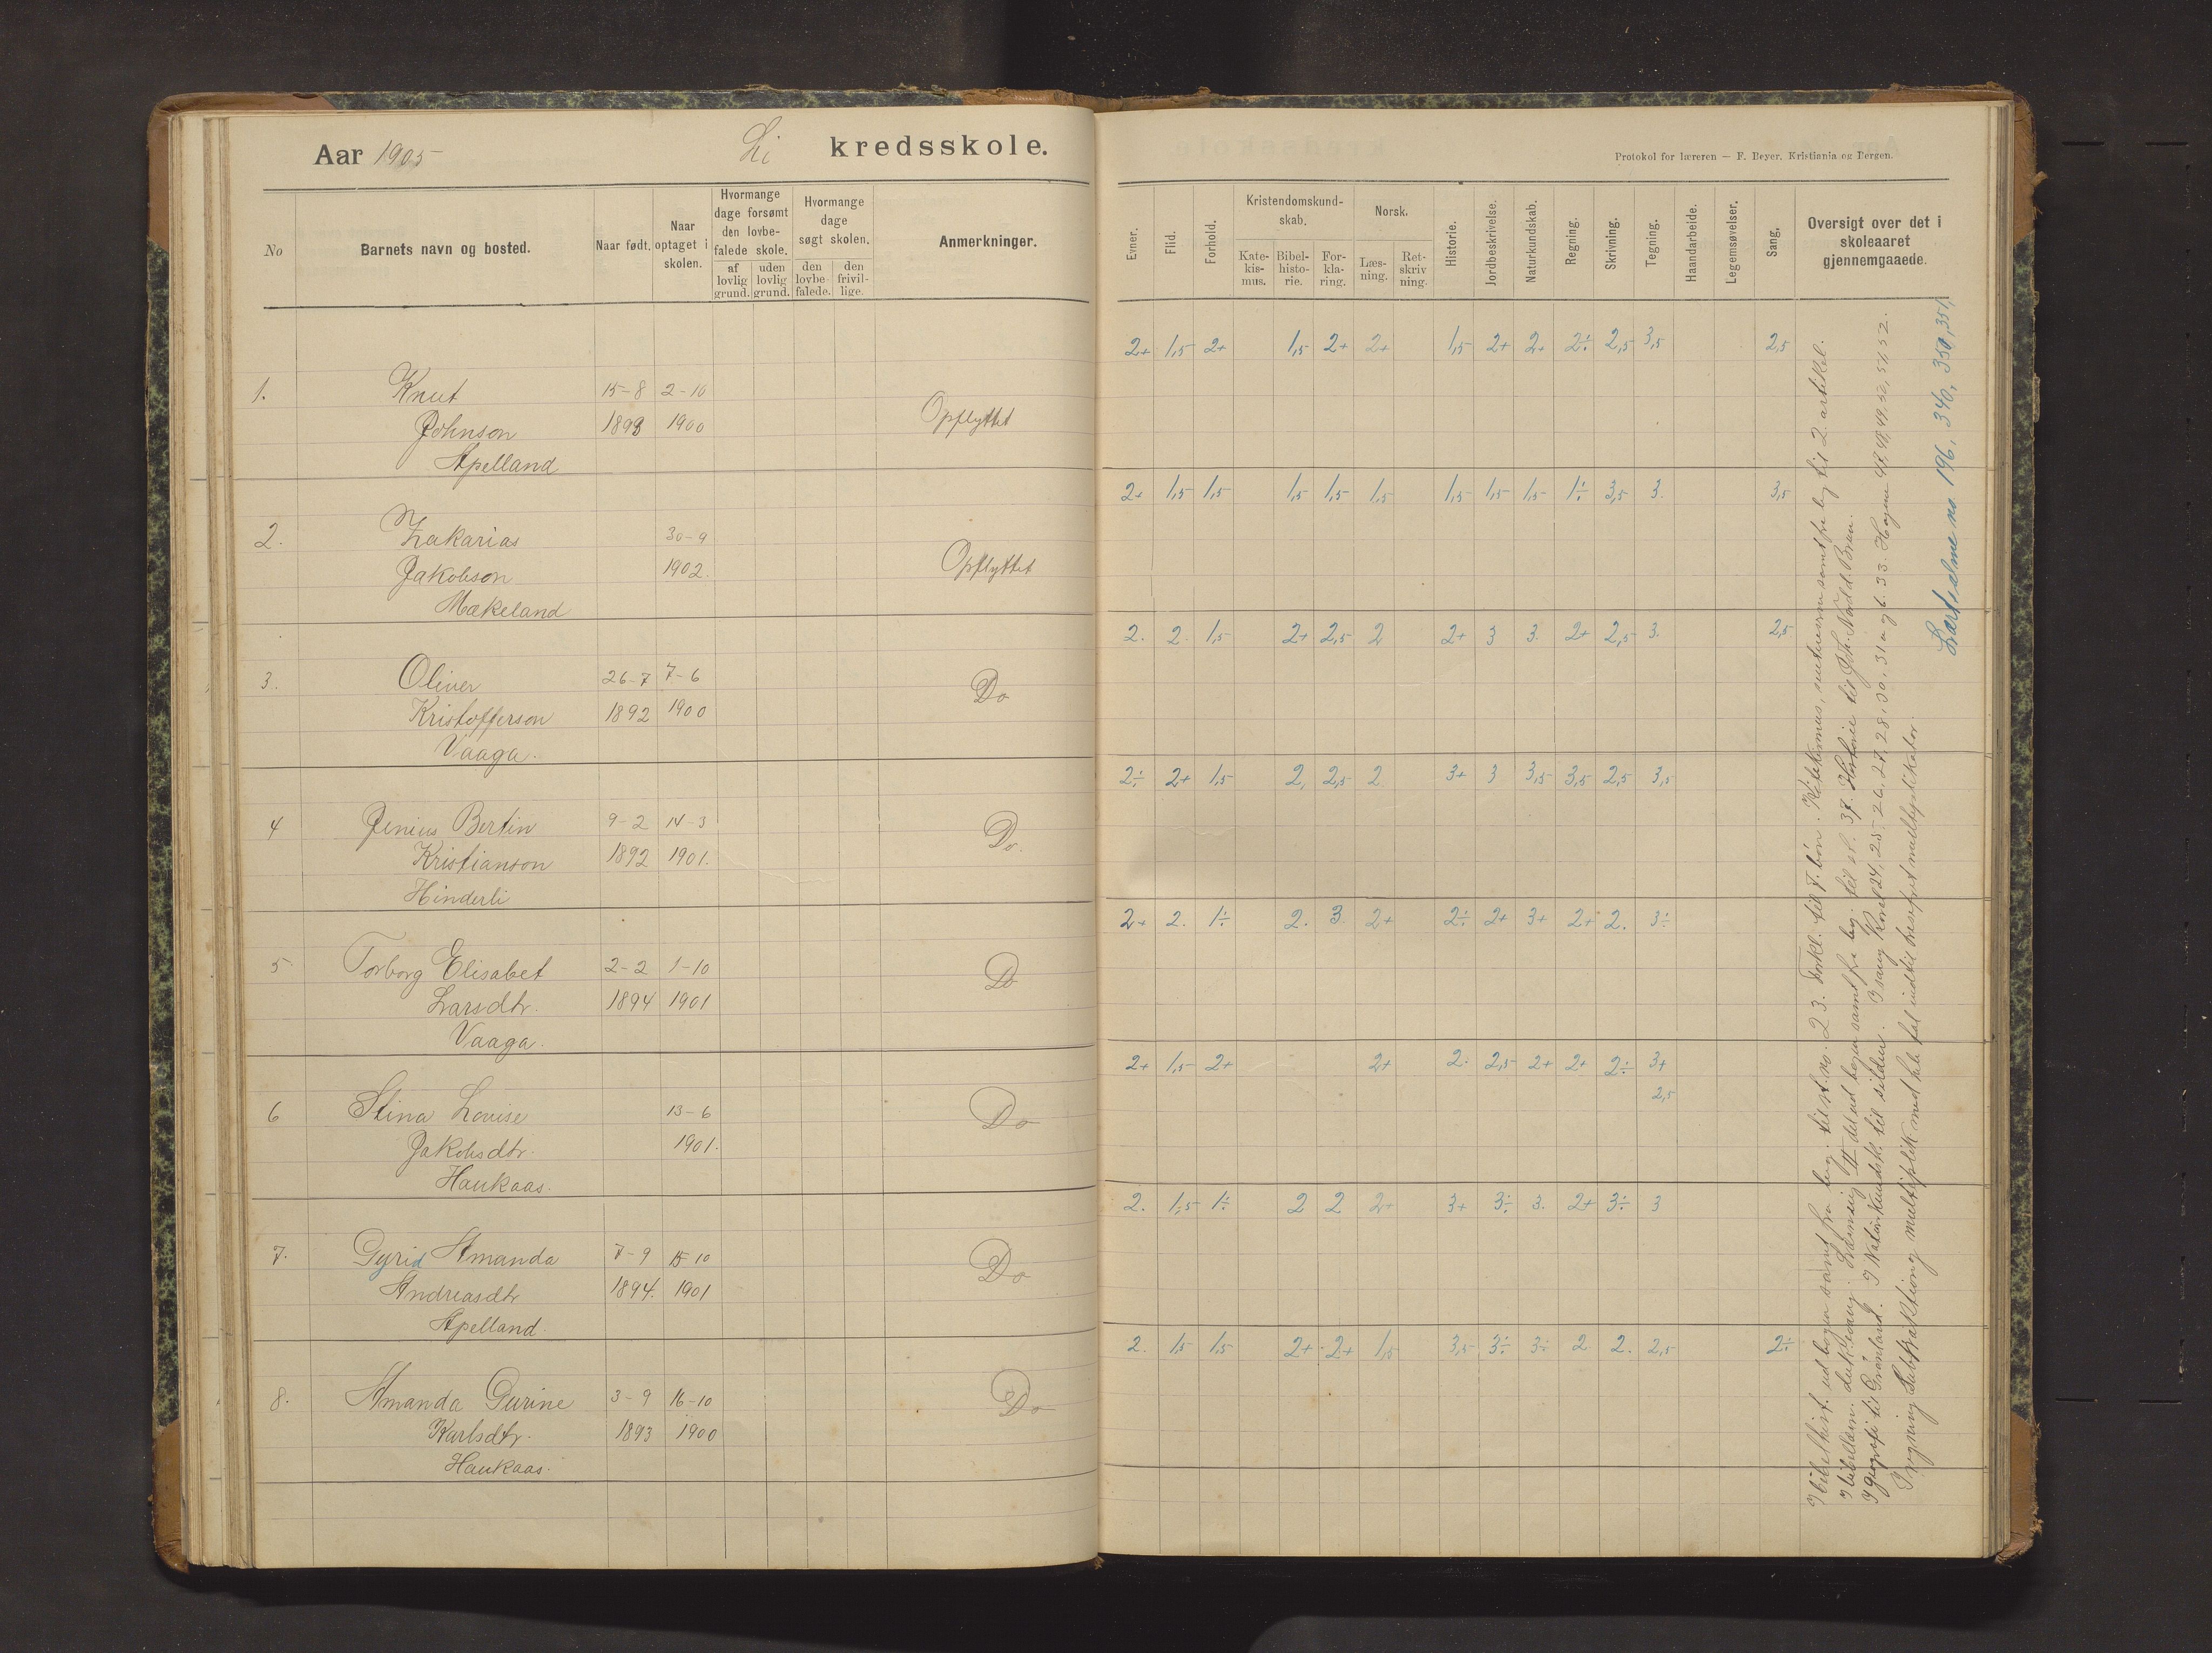 Aar 1905 Li kredsskole.
Protokol for læreren — F. Beyer. Kristiania og Bergen.
No Barnets navn og bosted. Naar født. Naar optaget i skolen. Hvormange dage forsømt den lovbefalede skole. af lovlig grund. uden lovlig grund. Hvormange dage søgt skolen. den lovbefalede. den frivillige. Anmerkninger.
Evner. Flid. Forhold. Kristendomskundskab. Katekismus. Bibelhistorie. Forklaring. Norsk. Læsning. Retskrivning. Historie. Jordbeskrivelse. Naturkundskab. Regning. Skrivning. Tegning. Haandarbeide. Legemsøvelser. Sang. Oversigt over det i skoleaaret gjennemgaaede.
2+ 1,5 2+ 1,5 2+ 2+ 1,5 2+ 2+ 2÷ 2,5 3,5 2,5
1. Knut 15-8 2-10
Johnson 1893 1900 Opflyttet
Apelland
2+ 1,5 1,5 1,5 1,5 1,5 1,5 1,5 1,5 1÷ 3,5 3. 3,5
2. Zakarias 30-9
Jakobson 1902. Opflyttet
Mækeland
2. 2. 1,5 2+ 2,5 2 2+ 3 3. 2+ 2,5 3. 2,5
3. Oliver 26-7 7-6 Do
Kristofferson 1892 1900
Vaaga.
2÷ 2+ 1,5 2, 2,5 2 3+ 3 3,5 3,5 2,5 3,5
4 Jenius Bertin 9-2 14-3 Do.
Kristianson 1892 1901.
Hinderli
2+ 2. 1÷ 2. 3. 2+ 2÷ 2+ 3+ 2+ 2. 3÷
5 Torborg Elisabet 2-2 1-10 Do
Larsdtr. 1894 1901
Vaaga.
2+ 1,5 2+ 2+ 2. 2,5 2+ 2+ 2÷ 3+
2,5
6 Stina Lovise 13-6 Do
Jakobsdtr. 1901.
Haukaas.
2. 1,5 1÷ 2 2 2+ 3+ 3÷ 3. 2+ 3÷ 3
7. Gyrid Amanda 7-9 15-10 Do
Andreasdtr 1894. 1901
Apelland.
2. 1,5 1,5 2+ 2+ 1,5 3,5 3÷ 3÷ 2 2. 2,5 2÷
8. Amanda Gurine 3-9 16-10 Do
Karlsdtr. 1893 1900
Haukaas.
I bibelhist. ud bogen samt fra beg. til st. no. 23. Forkl. til 7. bøn. Katekismus, samt fra beg til 2. artikkel.
II del ud bogen samt fra beg. til st. 37. Historie til Joh. Nordal Brun.
I geografi til Grønland. I Naturkundsk. til silden. I sang Koret 24, 25, 26, 27, 28, 30, 31 a og b. 33. Hognæ 47, 48, 49, 50, 51, 52.
I regning Subtraktion og multiplik. med hele tal indtil tresifret multiplikator.
Lært salme no 196, 340, 350, 351,